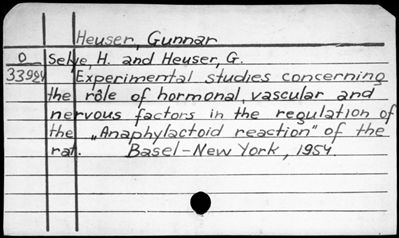 Heuser, Gunnar
O Selye, H. and Heuser, G.
Experimental studies concerning
the rôle of hormonal, vascular and
nervous factors in the regulation of
the „Anaphylactoid reaction" of the
rat. Basel-New York, 1954.